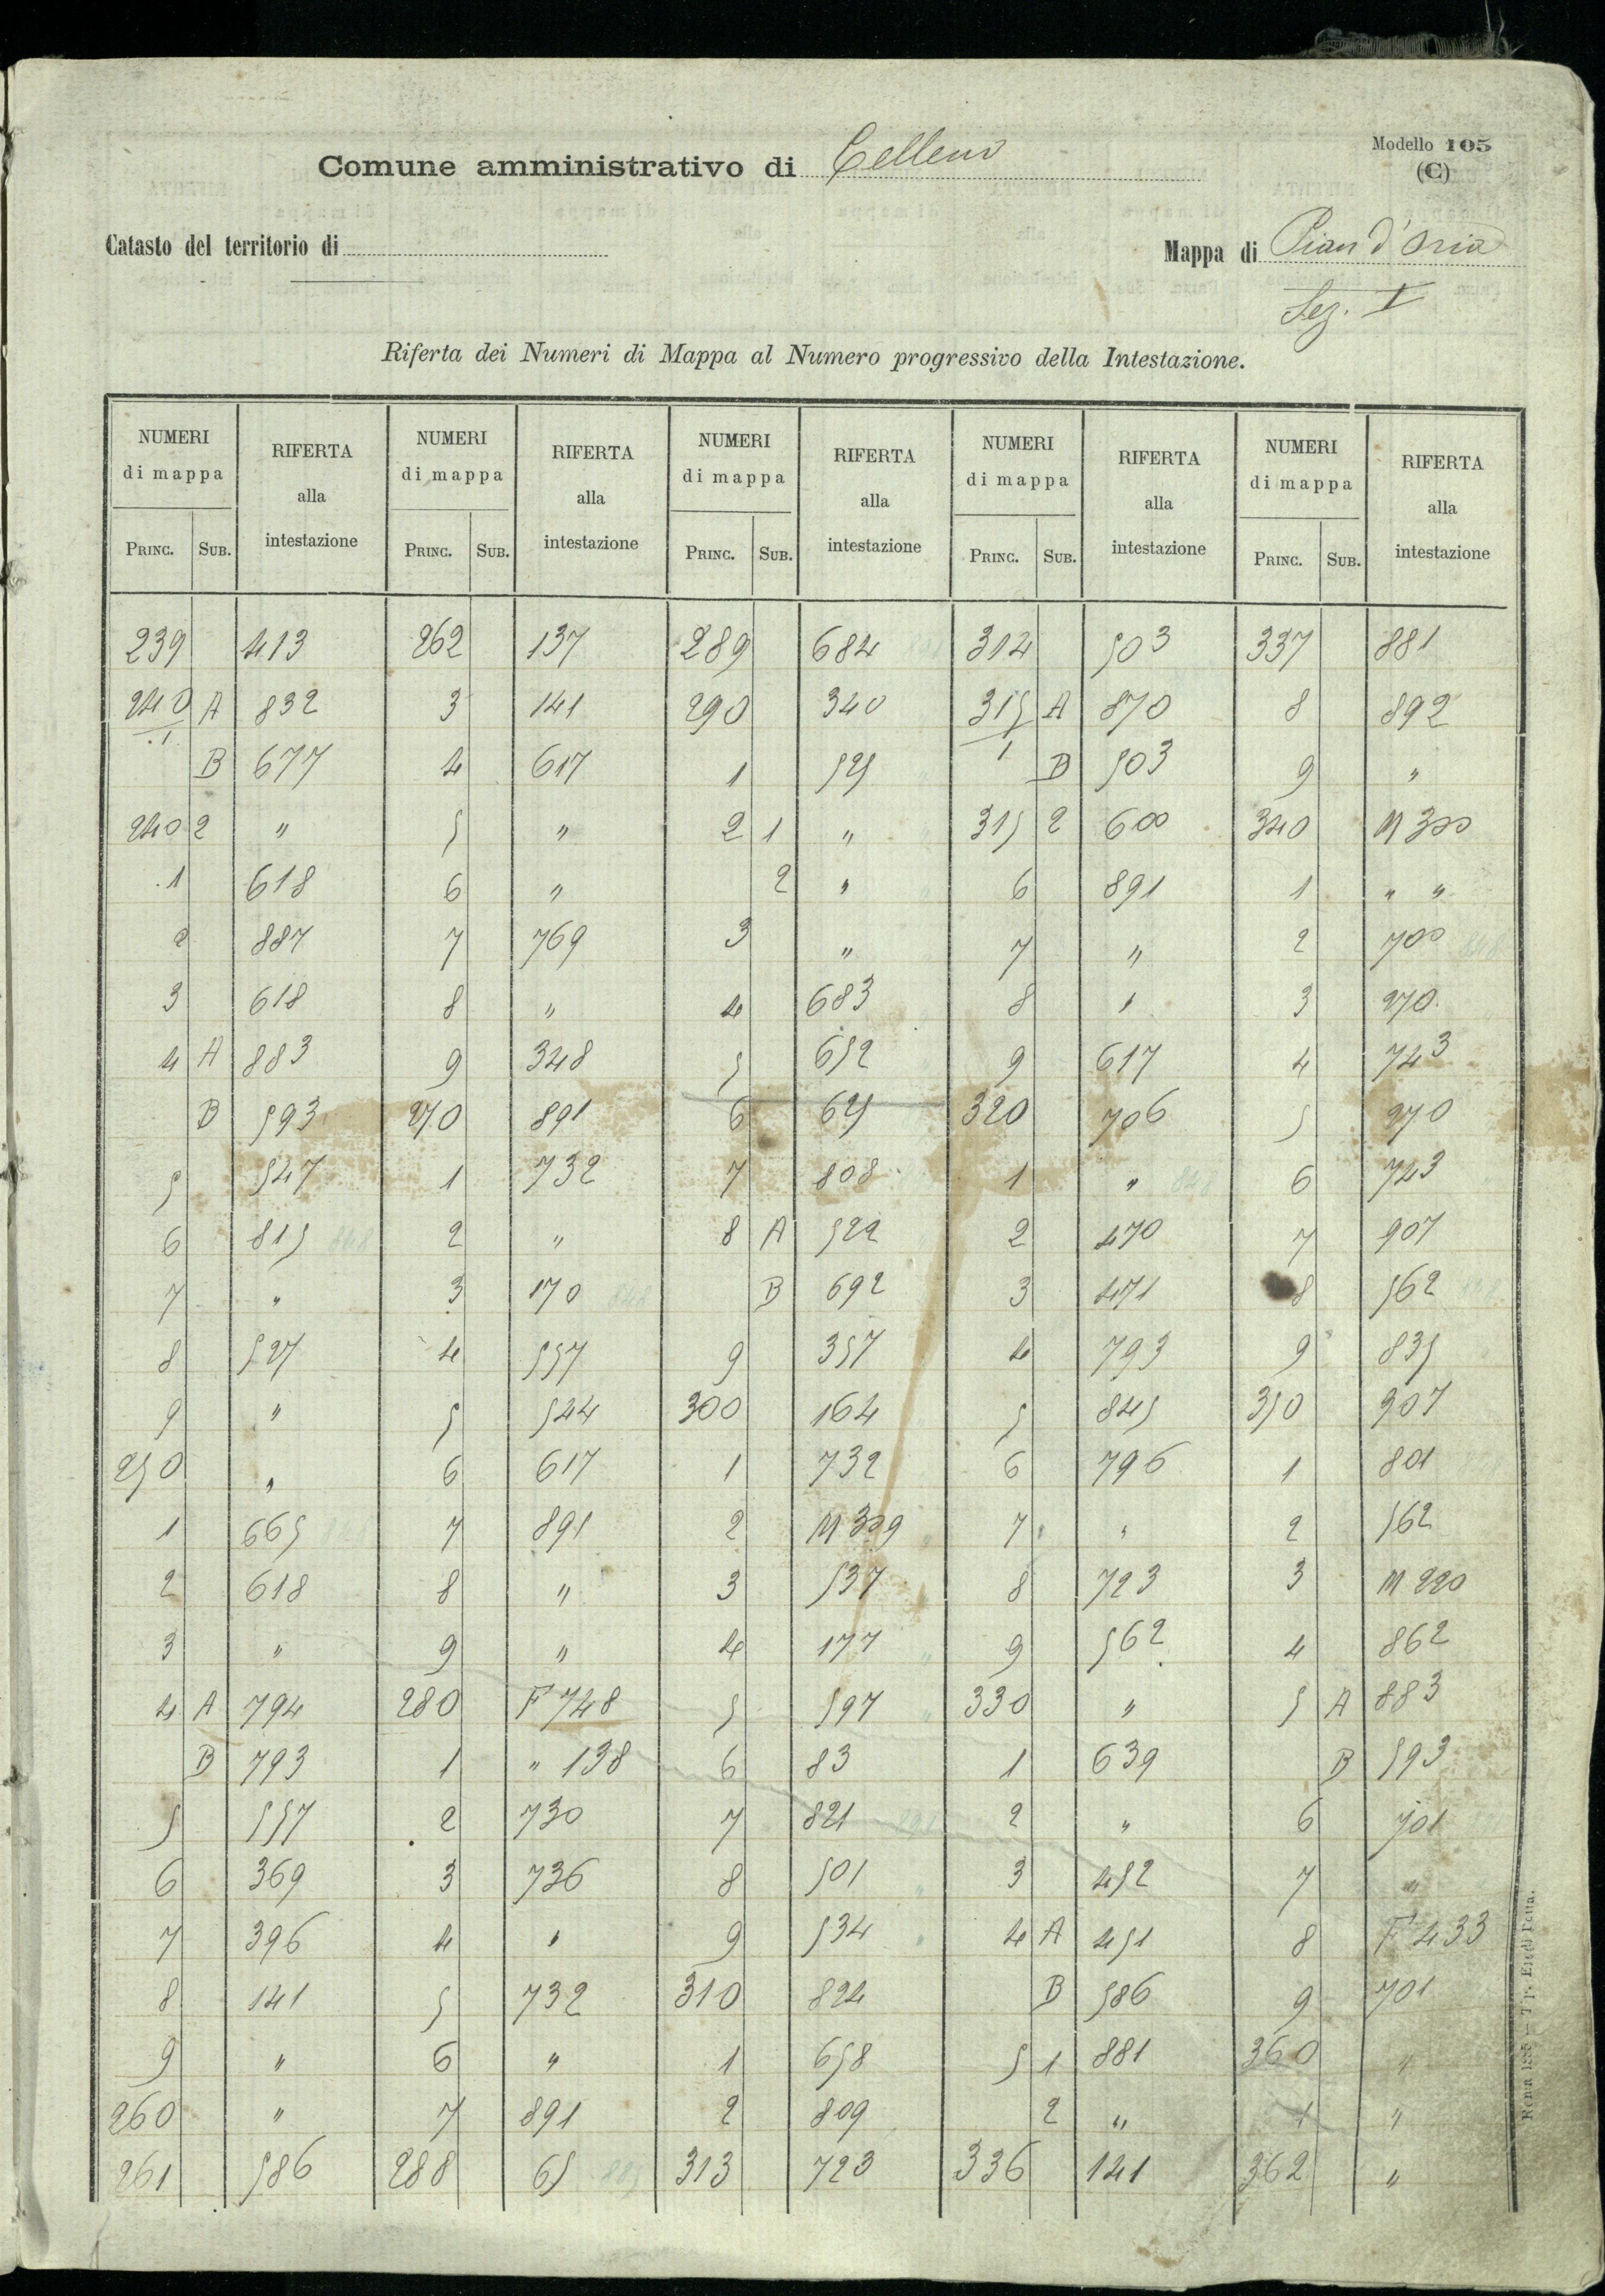 Modello 105
(C)
Comune amministrativo di Celleno
Catasto del territorio di
Mappa di Pian d'Oria
Sez. I
Riferta dei Numeri di Mappa al Numero progressivo della Intestazione.
NUMERI di mappa RIFERTA alla intestazione NUMERI di mappa RIFERTA alla intestazione NUMERI di mappa RIFERTA alla intestazione NUMERI di mappa RIFERTA alla intestazione NUMERI di mappa RIFERTA alla intestazione
PRINC. SUB. PRINC. SUB. PRINC. SUB. PRINC. SUB. PRINC. SUB.
239 413 262 137 289 684 314 503 337 881
240/1 A 832 3 141 290 340 315/1 A 870 8 892
B 677 4 617 1 525 B 503 9 "
240 2 " 5 " 2 1 " 315 2 600 340 M 300
1 618 6 " 2 " 6 891 1 " "
2 887 7 769 3 " 7 " 2 700
3 618 8 " 4 683 8 " 3 270
4 A 883 9 348 5 652 9 617 4 743
B 593 270 891 6 625 320 706 5 270
5 547 1 732 7 808 1 " 6 743
6 815 2 " 8 A 522 2 470 7 907
7 " 3 170 B 692 3 471 8 562
8 527 4 557 9 357 4 793 9 835
9 " 5 544 300 164 5 845 350 907
250 " 6 617 1 732 6 796 1 801
1 665 7 891 2 M 309 7 " 2 562
2 618 8 " 3 537 8 723 3 M 220
3 " 9 " 4 177 9 562 4 862
4 A 794 280 F 748 5 597 330 " 5 A 883
B 793 1 " 138 6 83 1 639 B 593
5 557 2 730 7 821 2 " 6 701
6 369 3 736 8 501 3 452 7 "
7 396 4 " 9 534 4 A 451 8 F 433
8 141 5 732 310 824 B 586 9 701
9 " 6 " 1 658 5 1 881 360 "
260 " 7 891 2 809 2 " 1 "
261 586 288 65 313 723 336 141 362 "